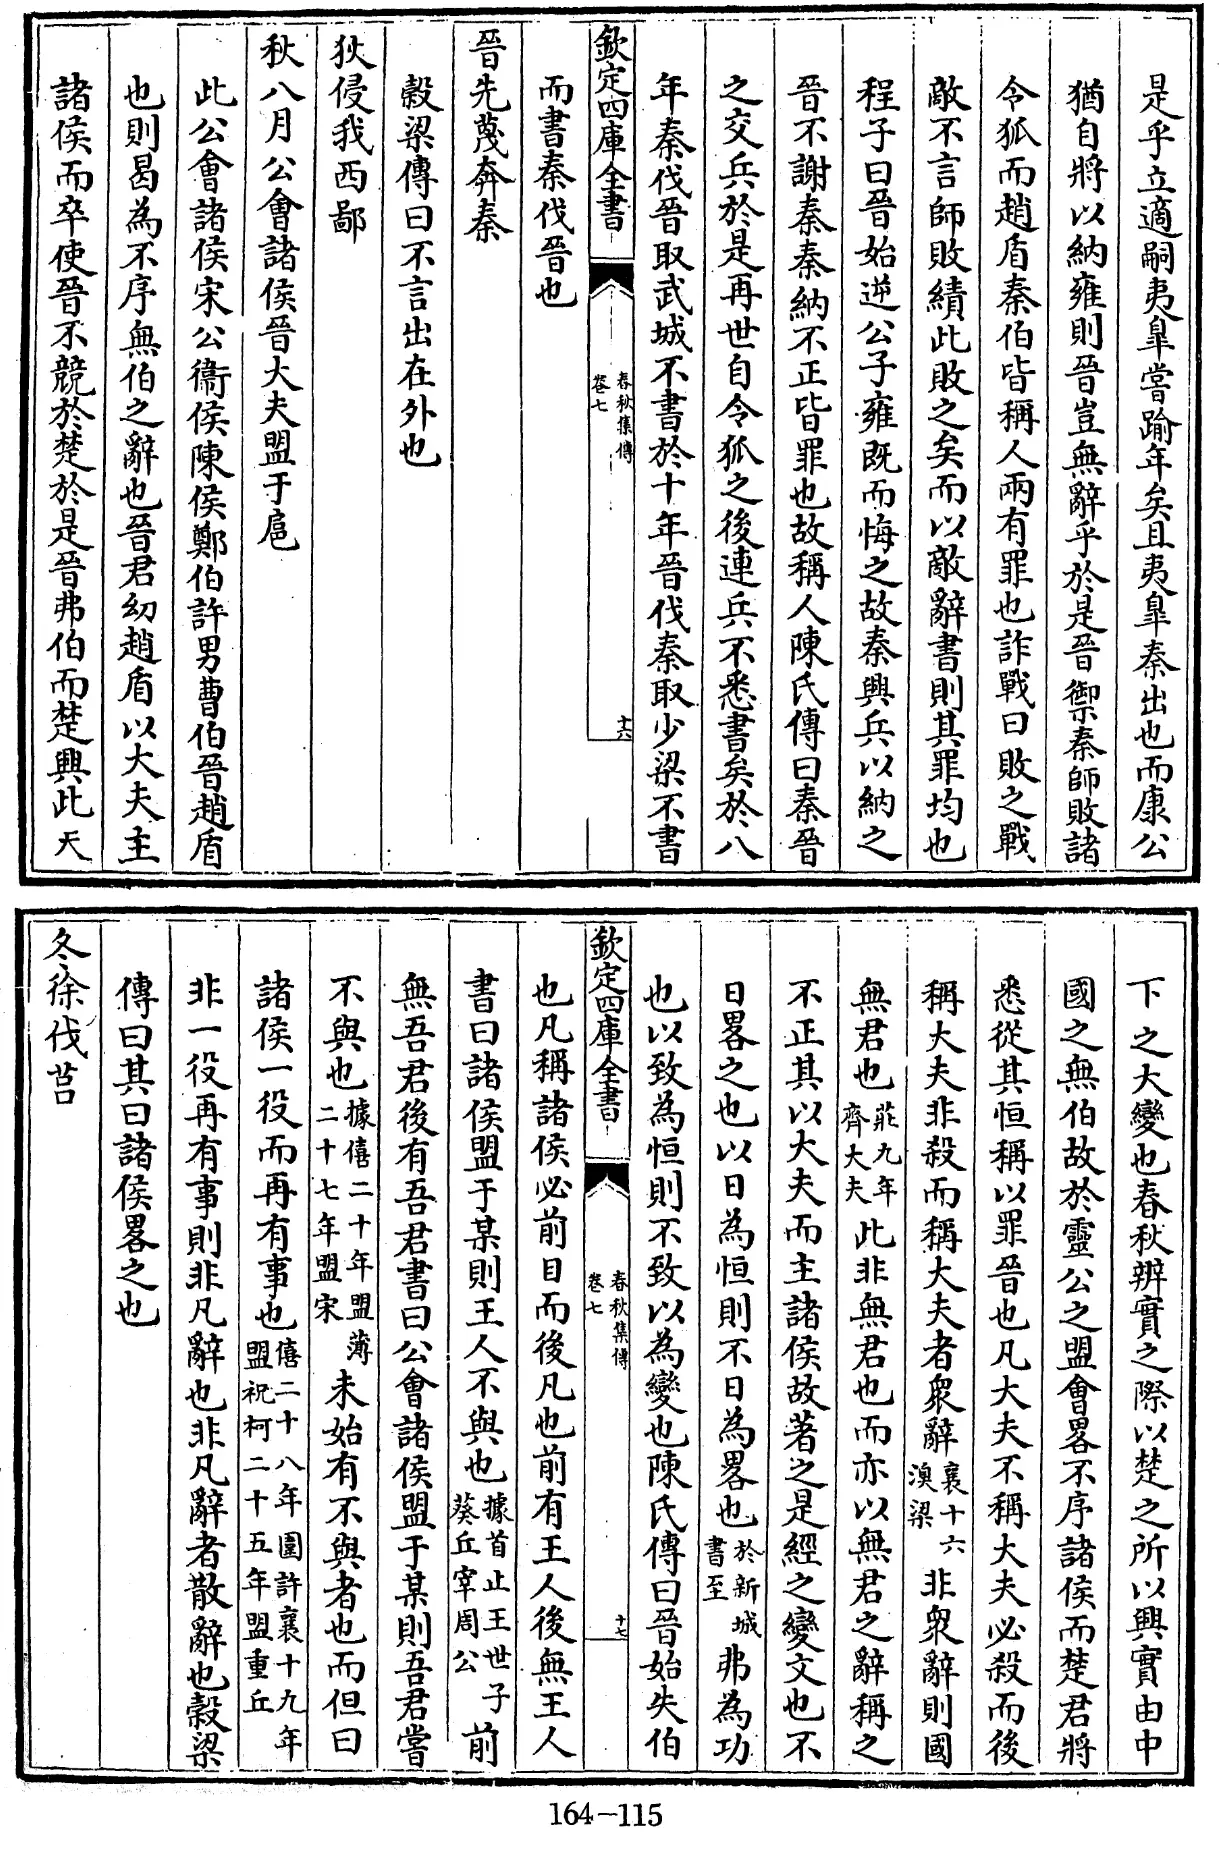 是乎立適嗣夷臯嘗踰年矣且夷臯秦出也而康公
猶自將以納雍則晉豈無辭乎於是晉禦秦師敗諸
令狐而趙盾秦伯皆稱人兩有罪也詐戰曰敗之戰
敵不言師敗績此敗之矣而以敵辭書則其罪均也
程子曰晉始逆公子雍既而悔之故秦興兵以納之
晉不謝秦秦納不正皆罪也故稱人陳氏傳曰秦晉
之交兵於是再世自令狐之後連兵不悉書矣於八
年秦伐晉取武城不書於十年晉伐秦取少梁不書
欽定四庫全書
春秋集傳
卷七
十六
而書秦伐晉也
晉先蔑奔秦
穀梁傳曰不言出在外也
狄侵我西鄙
秋八月公會諸侯晉大夫盟于扈
此公會諸侯宋公衞侯陳侯鄭伯許男曹伯晉趙盾
也則曷為不序無伯之辭也晉君幼趙盾以大夫主
諸侯而卒使晉不競於楚於是晉弗伯而楚興此天
下之大變也春秋辨實之際以楚之所以興實由中
國之無伯故於靈公之盟會畧不序諸侯而楚君將
悉從其恒稱以罪晉也凡大夫不稱大夫必殺而後
稱大夫非殺而稱大夫者衆辭襄十六溴梁非衆辭則國
無君也莊九年齊大夫此非無君也而亦以無君之辭稱之
不正其以大夫而主諸侯故著之是經之變文也不
日畧之也以日為恒則不日為畧也於新城書至弗為功
也以致為恒則不致以為變也陳氏傳曰晉始失伯
欽定四庫全書
春秋集傳
卷七
十七
也凡稱諸侯必前目而後凡也前有王人後無王人
書曰諸侯盟于某則王人不與也據首止王世子葵丘宰周公前
無吾君後有吾君書曰公會諸侯盟于某則吾君嘗
不與也據僖二十年盟薄二十七年盟宋未始有不與者也而但曰
諸侯一役而再有事也僖二十八年圍許襄十九年盟祝柯二十五年盟重丘
非一役再有事則非凡辭也非凡辭者散辭也穀梁
傳曰其曰諸侯畧之也
冬徐伐莒
164-115